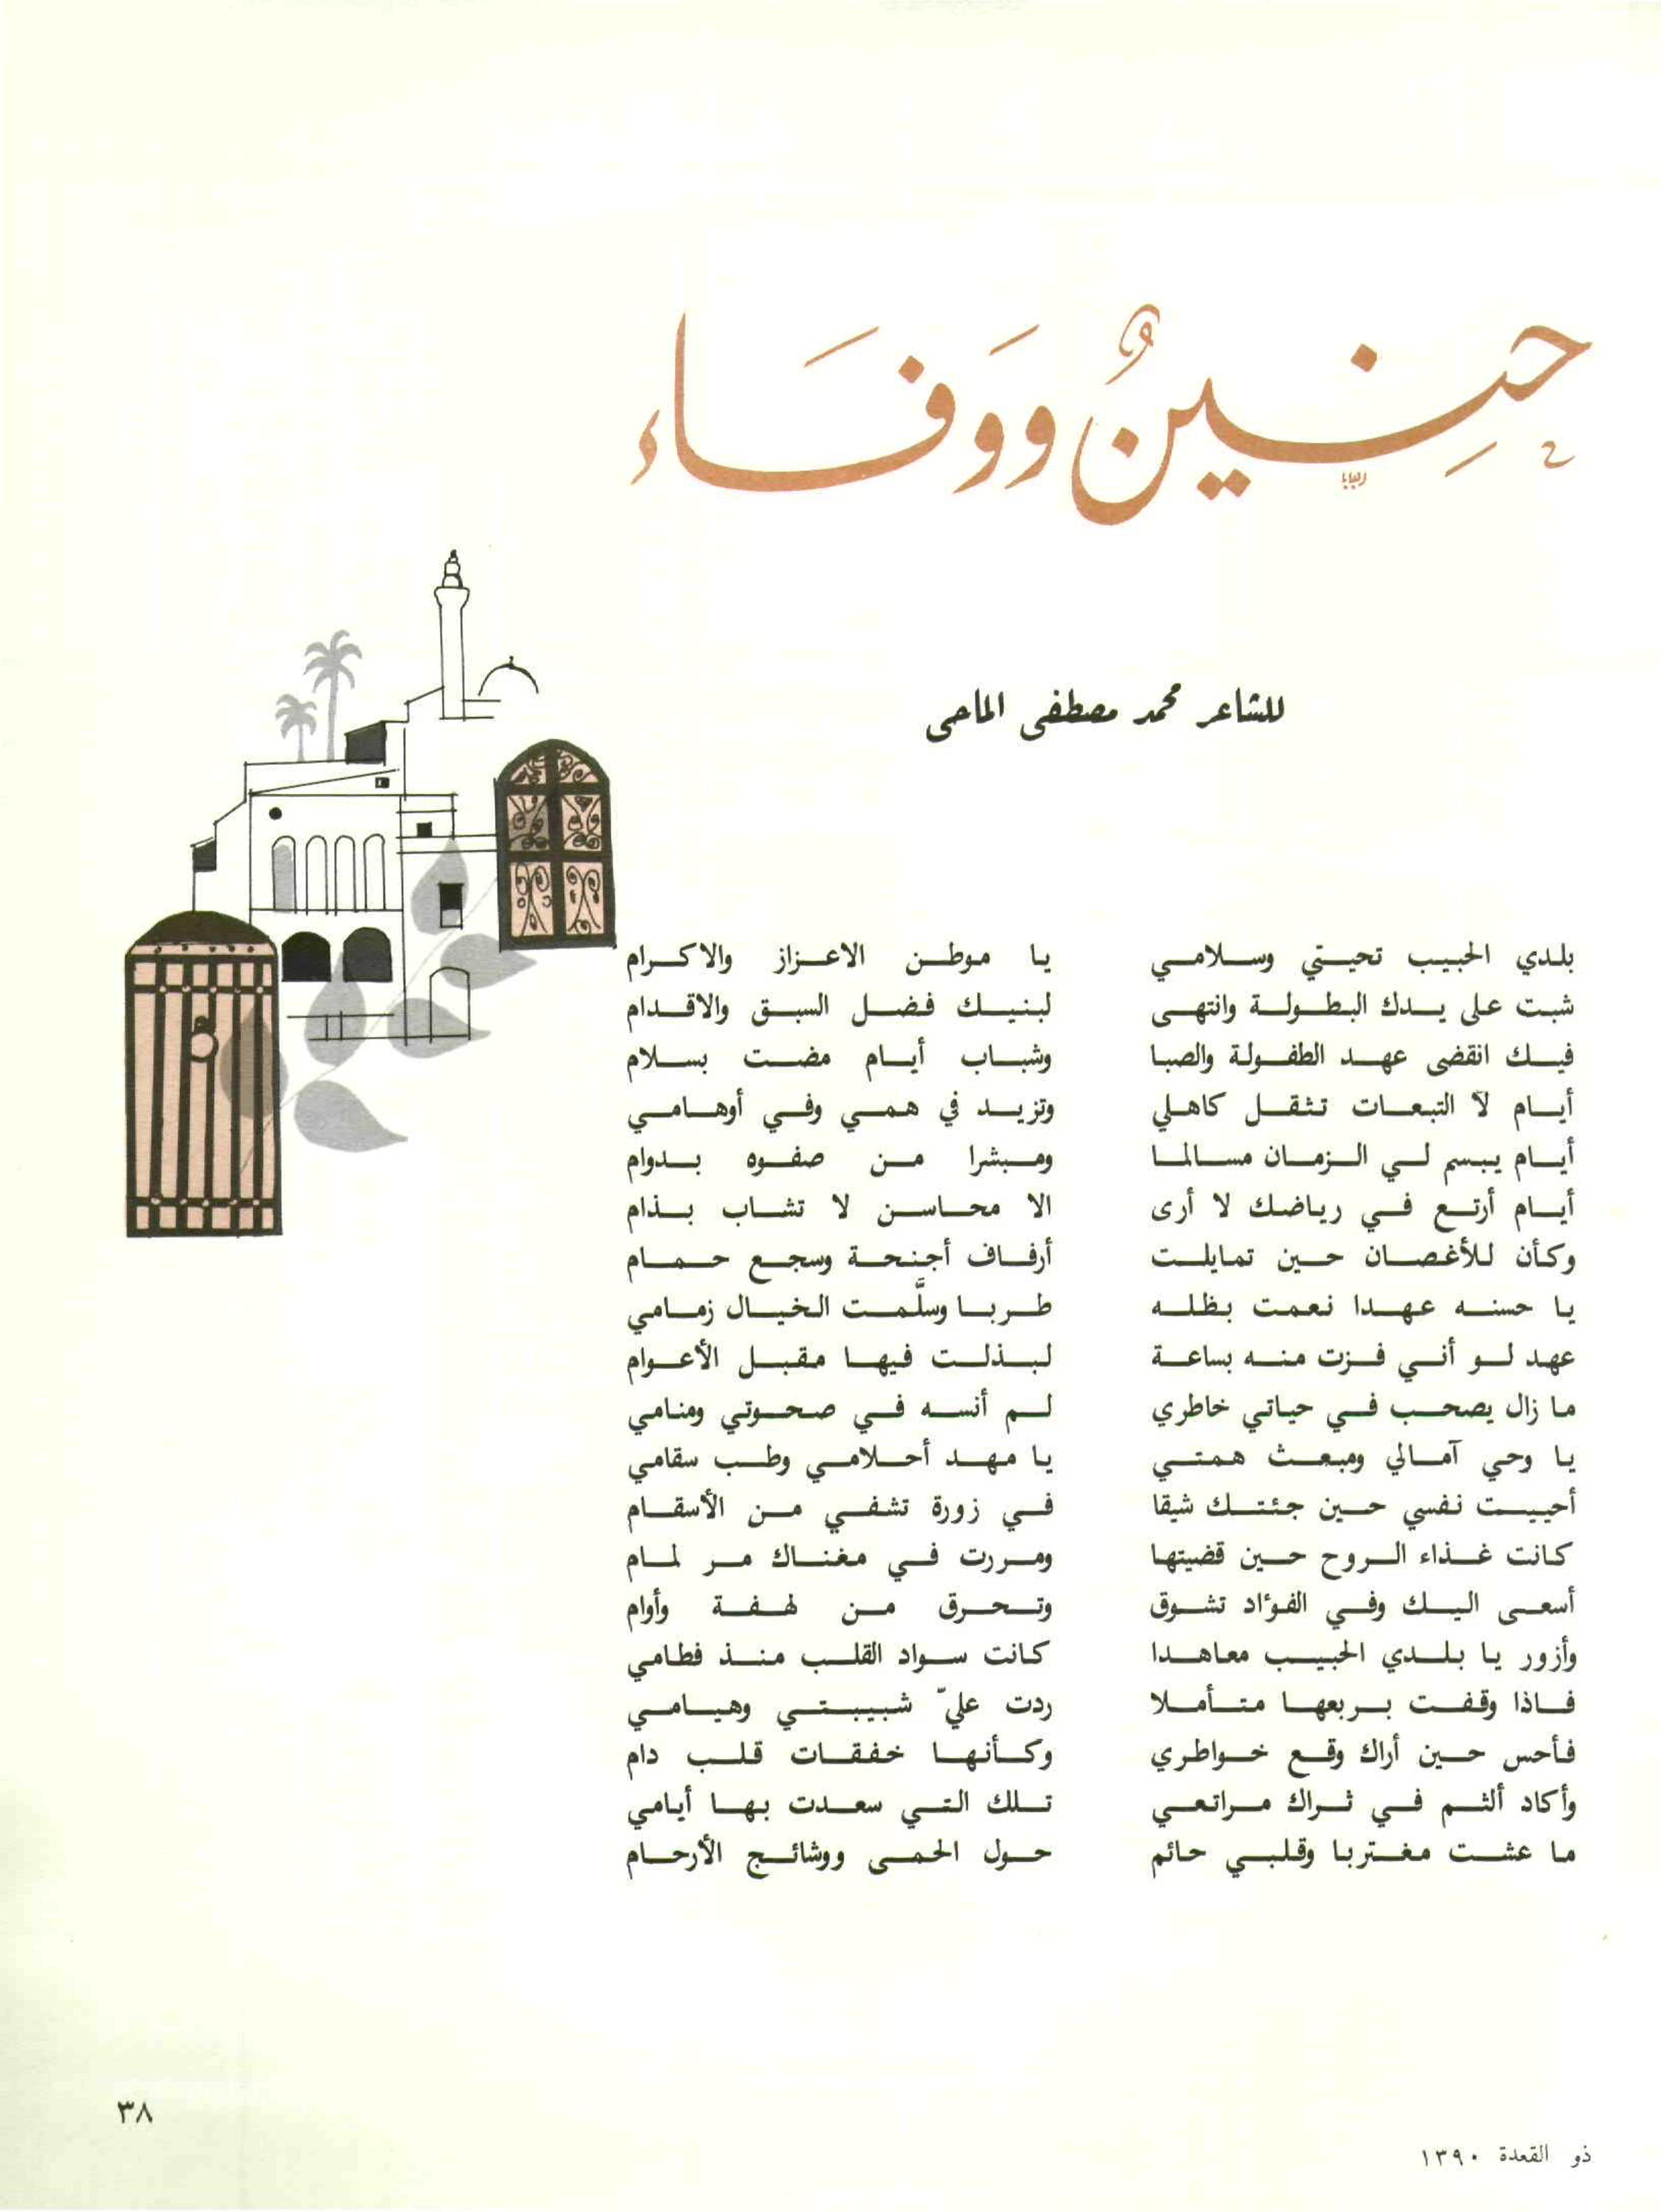 حَنِينٌ وَوَفَاء
للشاعر محمد مصطفى الماحي
بلدي الحبيب تحيتي وسلامي يا موطن الاعزاز والاكرام
شبت على يدك البطولة وانتهى لبنيك فضل السبق والاقدام
فيك انقضى عهد الطفولة والصبا وشباب أيام مضت بسلام
أيام لا التبعات تثقل كاهلي وتزيد في همي وفي أوهامي
أيام يبسم لي الزمان مسالما ومبشرا من صفوه بدوام
أيام أرتع في رياضك لا أرى الا محاسن لا تشاب بذام
وكأن للأغصان حين تمايلت أرفاف أجنحة وسجع حمام
يا حسنه عهدا نعمت بظله طربا وسلَّمت الخيال زمامي
عهد لو أني فزت منه بساعة لبذلت فيها مقبل الأعوام
ما زال يصحب في حياتي خاطري لم أنسه في صحوتي ومنامي
يا وحي آمالي ومبعث همتي يا مهد أحلامي وطب سقامي
أحييت نفسي حين جئتك شيقا في زورة تشفي من الأسقام
كانت غذاء الروح حين قضيتها ومررت في مغناك مر لمام
أسعى اليك وفي الفؤاد تشوق وتحرق من لهفة وأوام
وأزور يا بلدي الحبيب معاهدا كانت سواد القلب منذ فطامي
فاذا وقفت بربعها متأملا ردت عليّ شبيبتي وهيامي
فأحس حين أراك وقع خواطري وكأنها خفقات قلب دام
وأكاد ألثم في ثراك مراتعي تلك التي سعدت بها أيامي
ما عشت مغتربا وقلبي حائم حول الحمى ووشائج الأرحام
٣٨
ذو القعدة ١٣٩٠